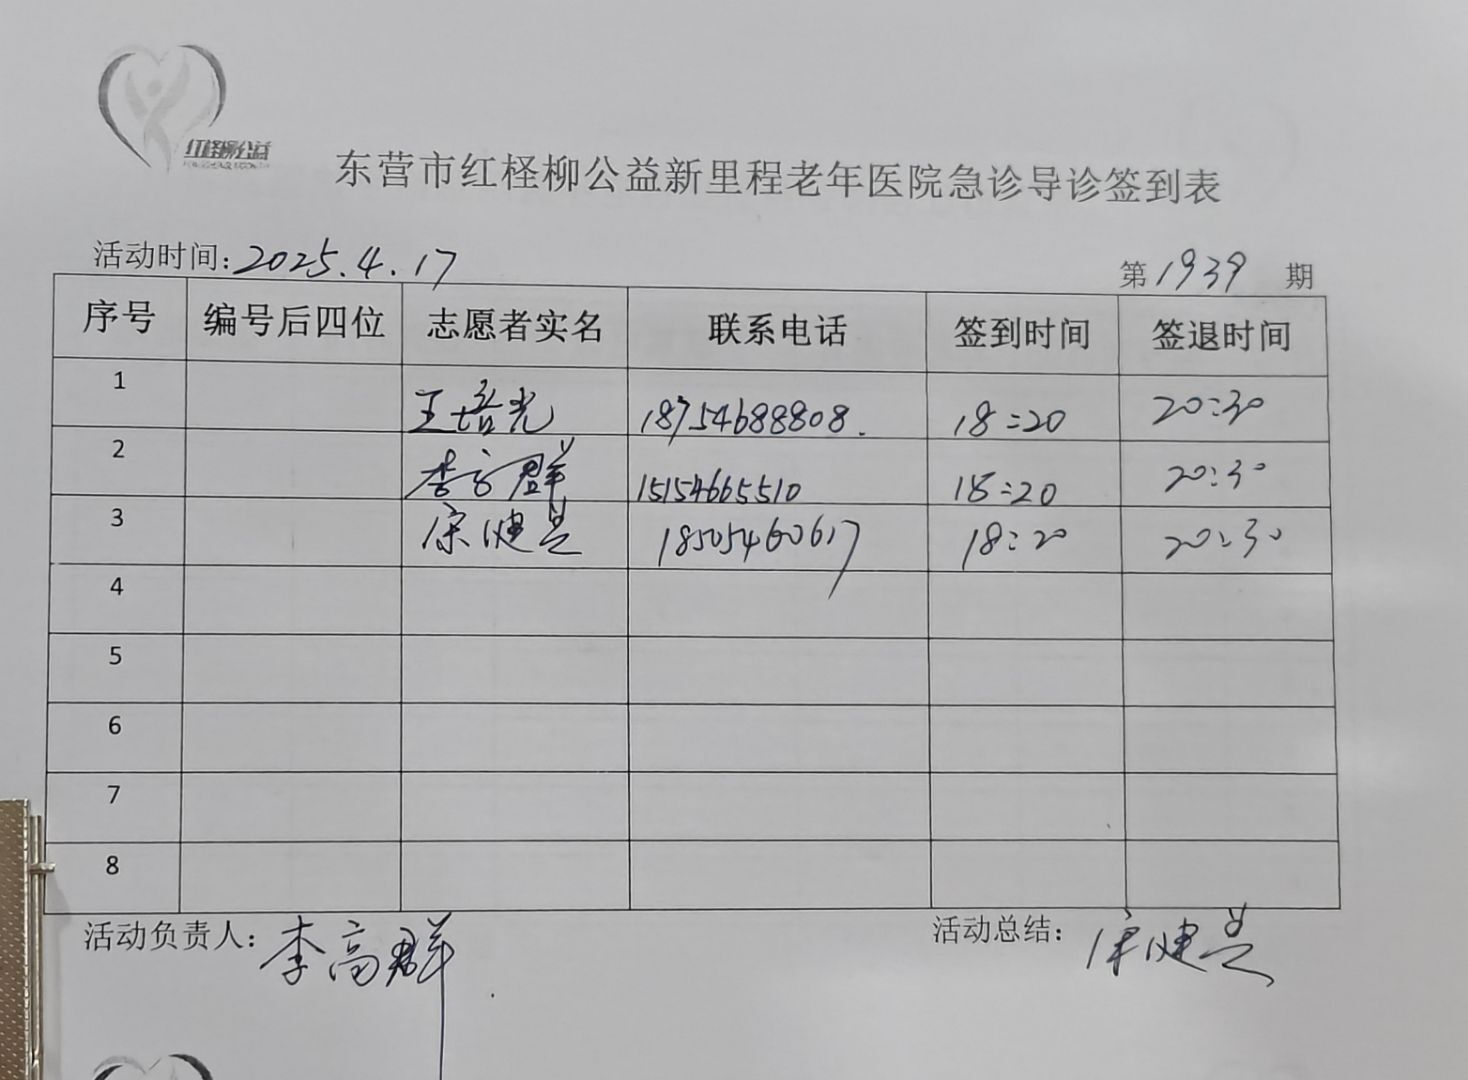 红柽柳公益
东营市红柽柳公益新里程老年医院急诊导诊签到表
活动时间:2025.4.17
第1939期
序号 编号后四位 志愿者实名 联系电话 签到时间 签退时间
1 王培光 18754688808. 18:20 20:30
2 李高群 15154665510 18:20 20:30
3 宋健 18505460617 18:20 20:30
4
5
6
7
8
活动负责人:李高群
活动总结:宋健